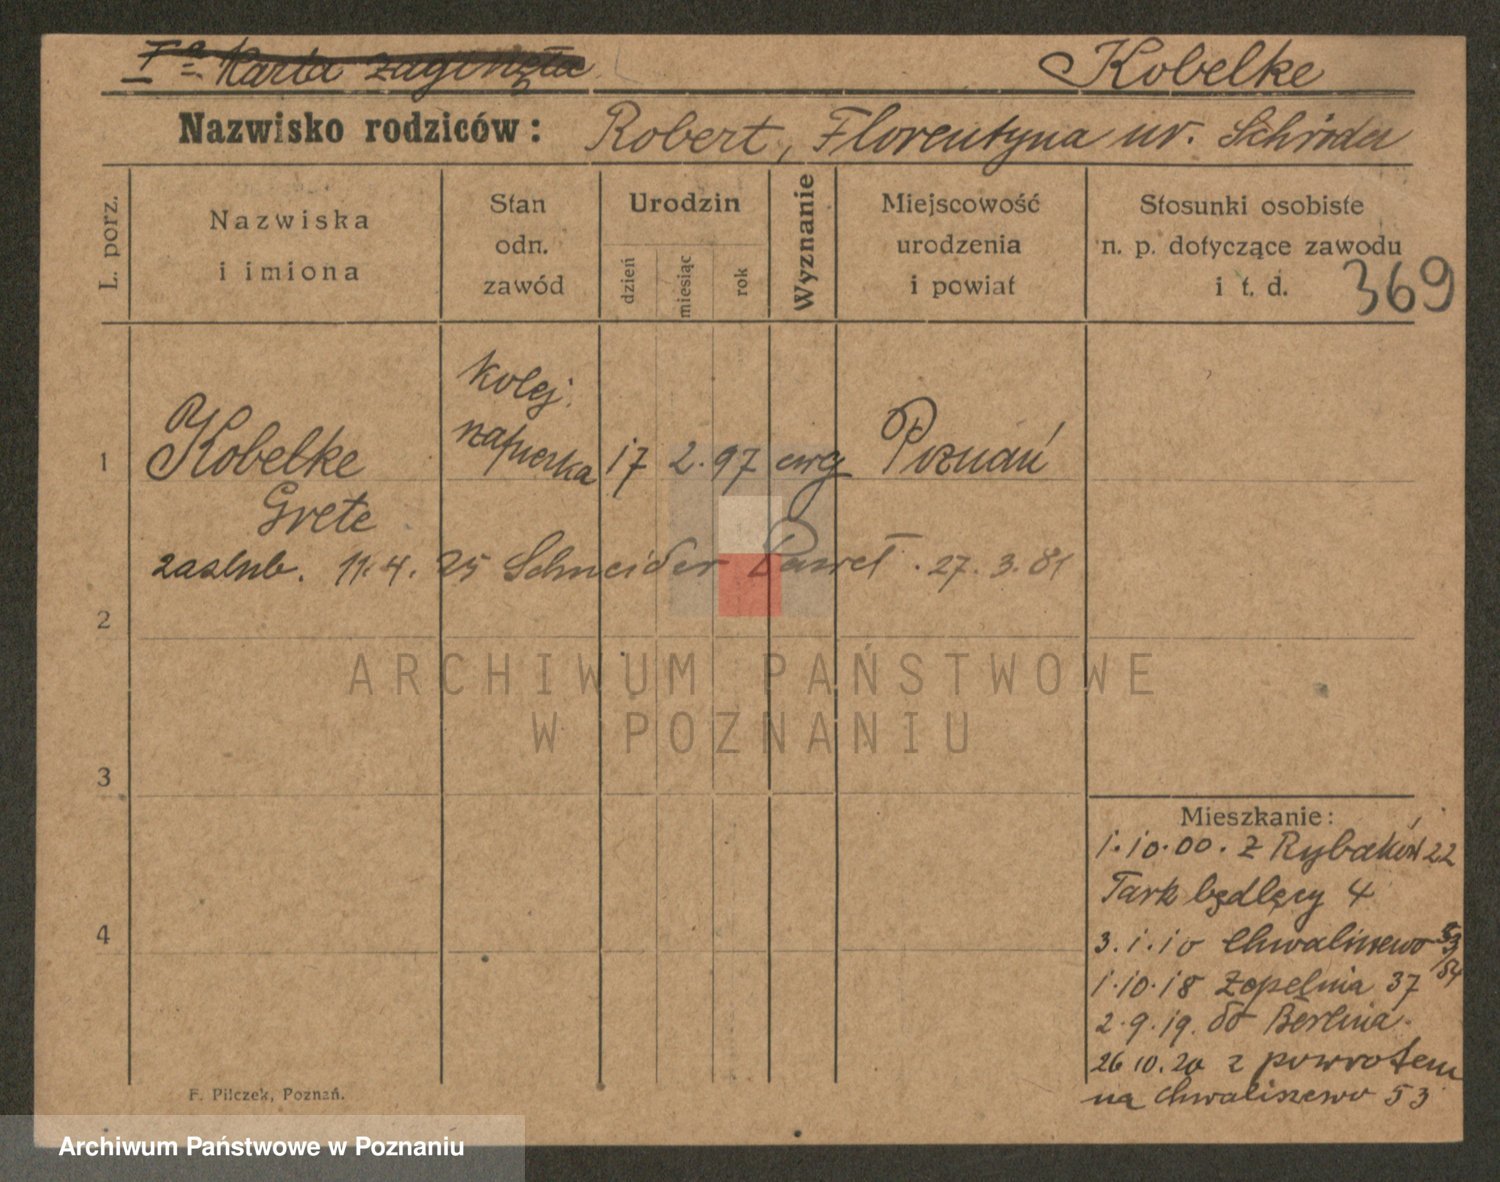 I-a Karta zaginęła
Kobelke
Nazwisko rodziców: Robert, Florentyna ur. Schröder
L. porz.
Nazwiska
i imiona
Stan
odn.
zawód
Urodzin
dzień
miesiąc
rok
Wyznanie
Miejscowość
urodzenia
i powiat
Stosunki osobiste
n. p. dotyczące zawodu
i t. d.
369
kolej.
1 Kobelke 17 2. 97 ewg Poznań
Grete
zaślub. 11.4. 25 Schneider Paweł. 27. 3. 81
2
ARCHIWUM PAŃSTWOWE
W POZNANIU
3
Mieszkanie:
1.10.00. z Rybaków 22
4
3.1.10 Chwaliszewo 53
/54
1.10.18 37
2.9.19. do Berlina.
26 10. 20 z powrotem
na Chwaliszewo 53
F. Pilczek, Poznań.
Archiwum Państwowe w Poznaniu